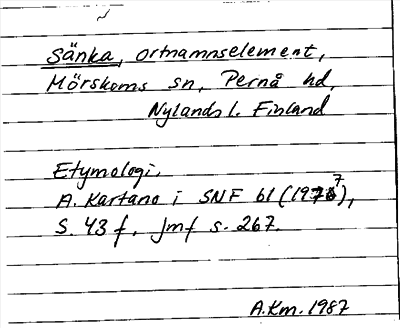 Sänka, ortnamnselement,
Mörskoms sn, Pernå hd,
Nylands l. Finland
Etymologi.
A. Kartano i SNF 61 (1977),
S. 43 f. Jmf s. 267.
A.Km. 1987